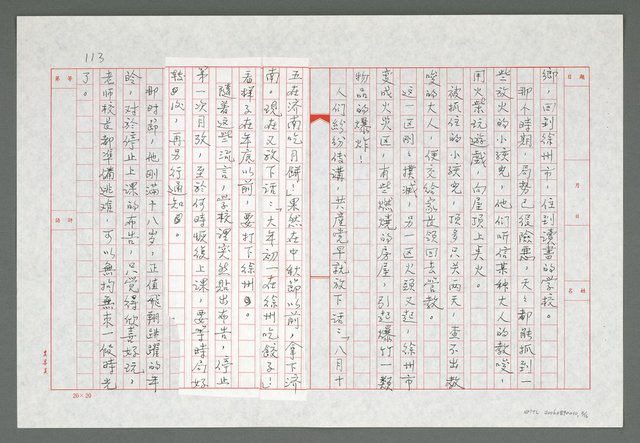 113
鄉，回到徐州市，住到讀書的學校。
那个時期，局勢已很險惡，天天都能抓到一
些放火的小孩兒，他們听信某种大人的教唆，
用火柴玩遊戲，向屋頂上点火。
被抓住的小孩兒，頂多只关两天，查不出教
唆的大人，便交给家長領回去管教。
這一区剛剛撲滅，另一区火頭又起，徐州市
变成火災区，有些燃燒的房屋，引起爆竹一類
物品的爆炸！
人們紛紛傳講，共產党早就放下話：「八月十
五在济南吃月餅！」果然在中秋節以前，拿下济
南。現在又放下話：「大年初一在徐州吃餃子！」
看樣子在年底以前，要打下徐州。
隨着這些流言，學校裡突然貼出布告，停止
第一次月攷，至於何時恢復上課，要等時局好
轉以後，再另行通知。
那时節，他剛滿十八岁，正值飛翔跳躍的年
龄，对於停止上课的布告，只覺得欣喜好玩，
老师校長都準備逃难，可以無拘無束一段時光
了。
題目
日
月
姓名
等第
評語
20×20